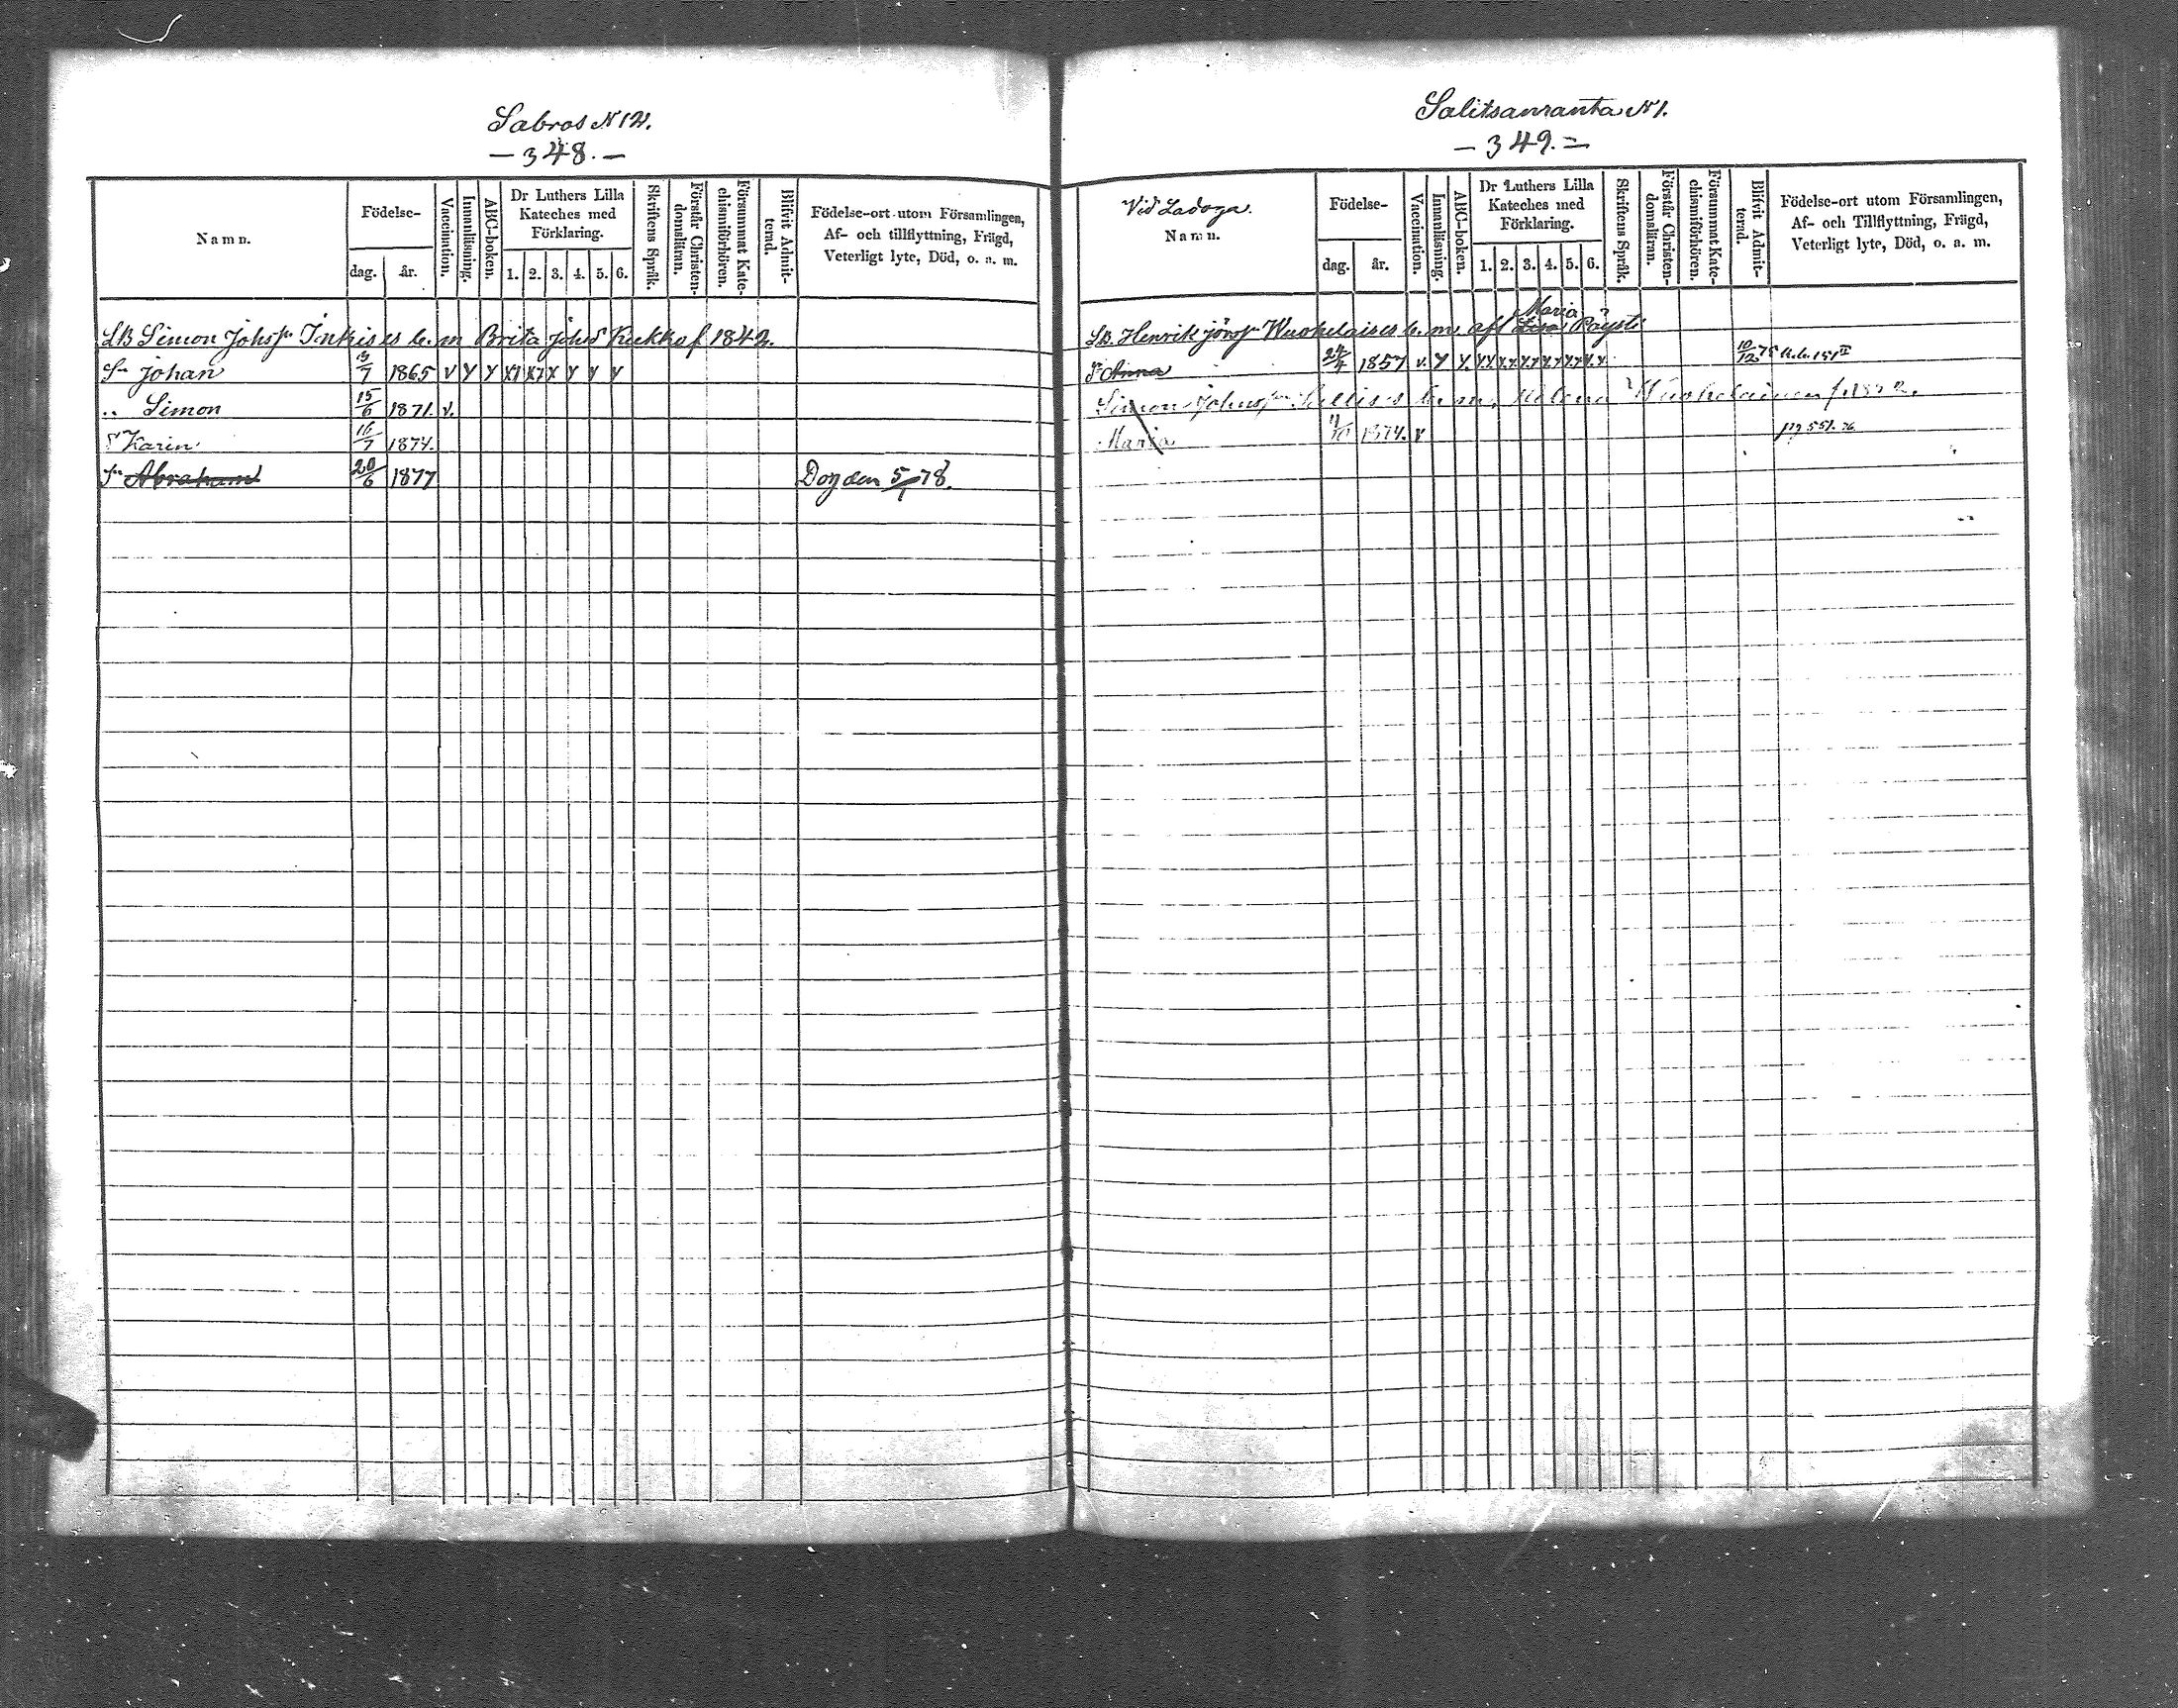 Sabros N 12.
— 348. —
Namn.
Födelse-
dag.
år.
Vaccination.
Innanläsning.
ABC-boken.
Dr Luthers Lilla
Kateches med
Förklaring.
1. 2. 3. 4. 5. 6.
Skriftens Språk.
Förstår Christen-
domsläran.
Försummat Kate-
chismiförhören.
Blifvit Admit-
terad.
Födelse-ort utom Församlingen,
Af- och tillflyttning, Frägd,
Veterligt lyte, Död, o. a. m.
LB Simon Johsn Inkises b. m Brita Johsd Kukko f 1842.
Sn Johan 3/7 1865 v y y x1 x7 x y y y
„ Simon 15/6 1871. v.
Dr Karin 16/7 1874.
Sn Abraham 20/6 1877 Dog den 5/1 78.
Salitsanranta N 1.
— 349. =
Vid Ladoga.
Namn.
Födelse-
dag.
år.
Vaccination.
Innanläsning.
ABC-boken.
Dr Luthers Lilla
Kateches med
Förklaring.
1. 2. 3. 4. 5. 6.
Skriftens Språk.
Förstår Christen-
domsläran.
Försummat Kate-
chismiförhören.
Blifvit Admit-
terad.
Födelse-ort utom Församlingen,
Af- och Tillflyttning, Frägd,
Veterligt lyte, Död, o. a. m.
Maria
LB. Henrik Wuohelaises b. m. aff Lisa Räysti
Dr Anna 24/4 1857 v. y y. 10/12 75
Simon Johnsn b. m. Helena Wuohelainen f. 1852.
Maria 1874. v pg 551. 76